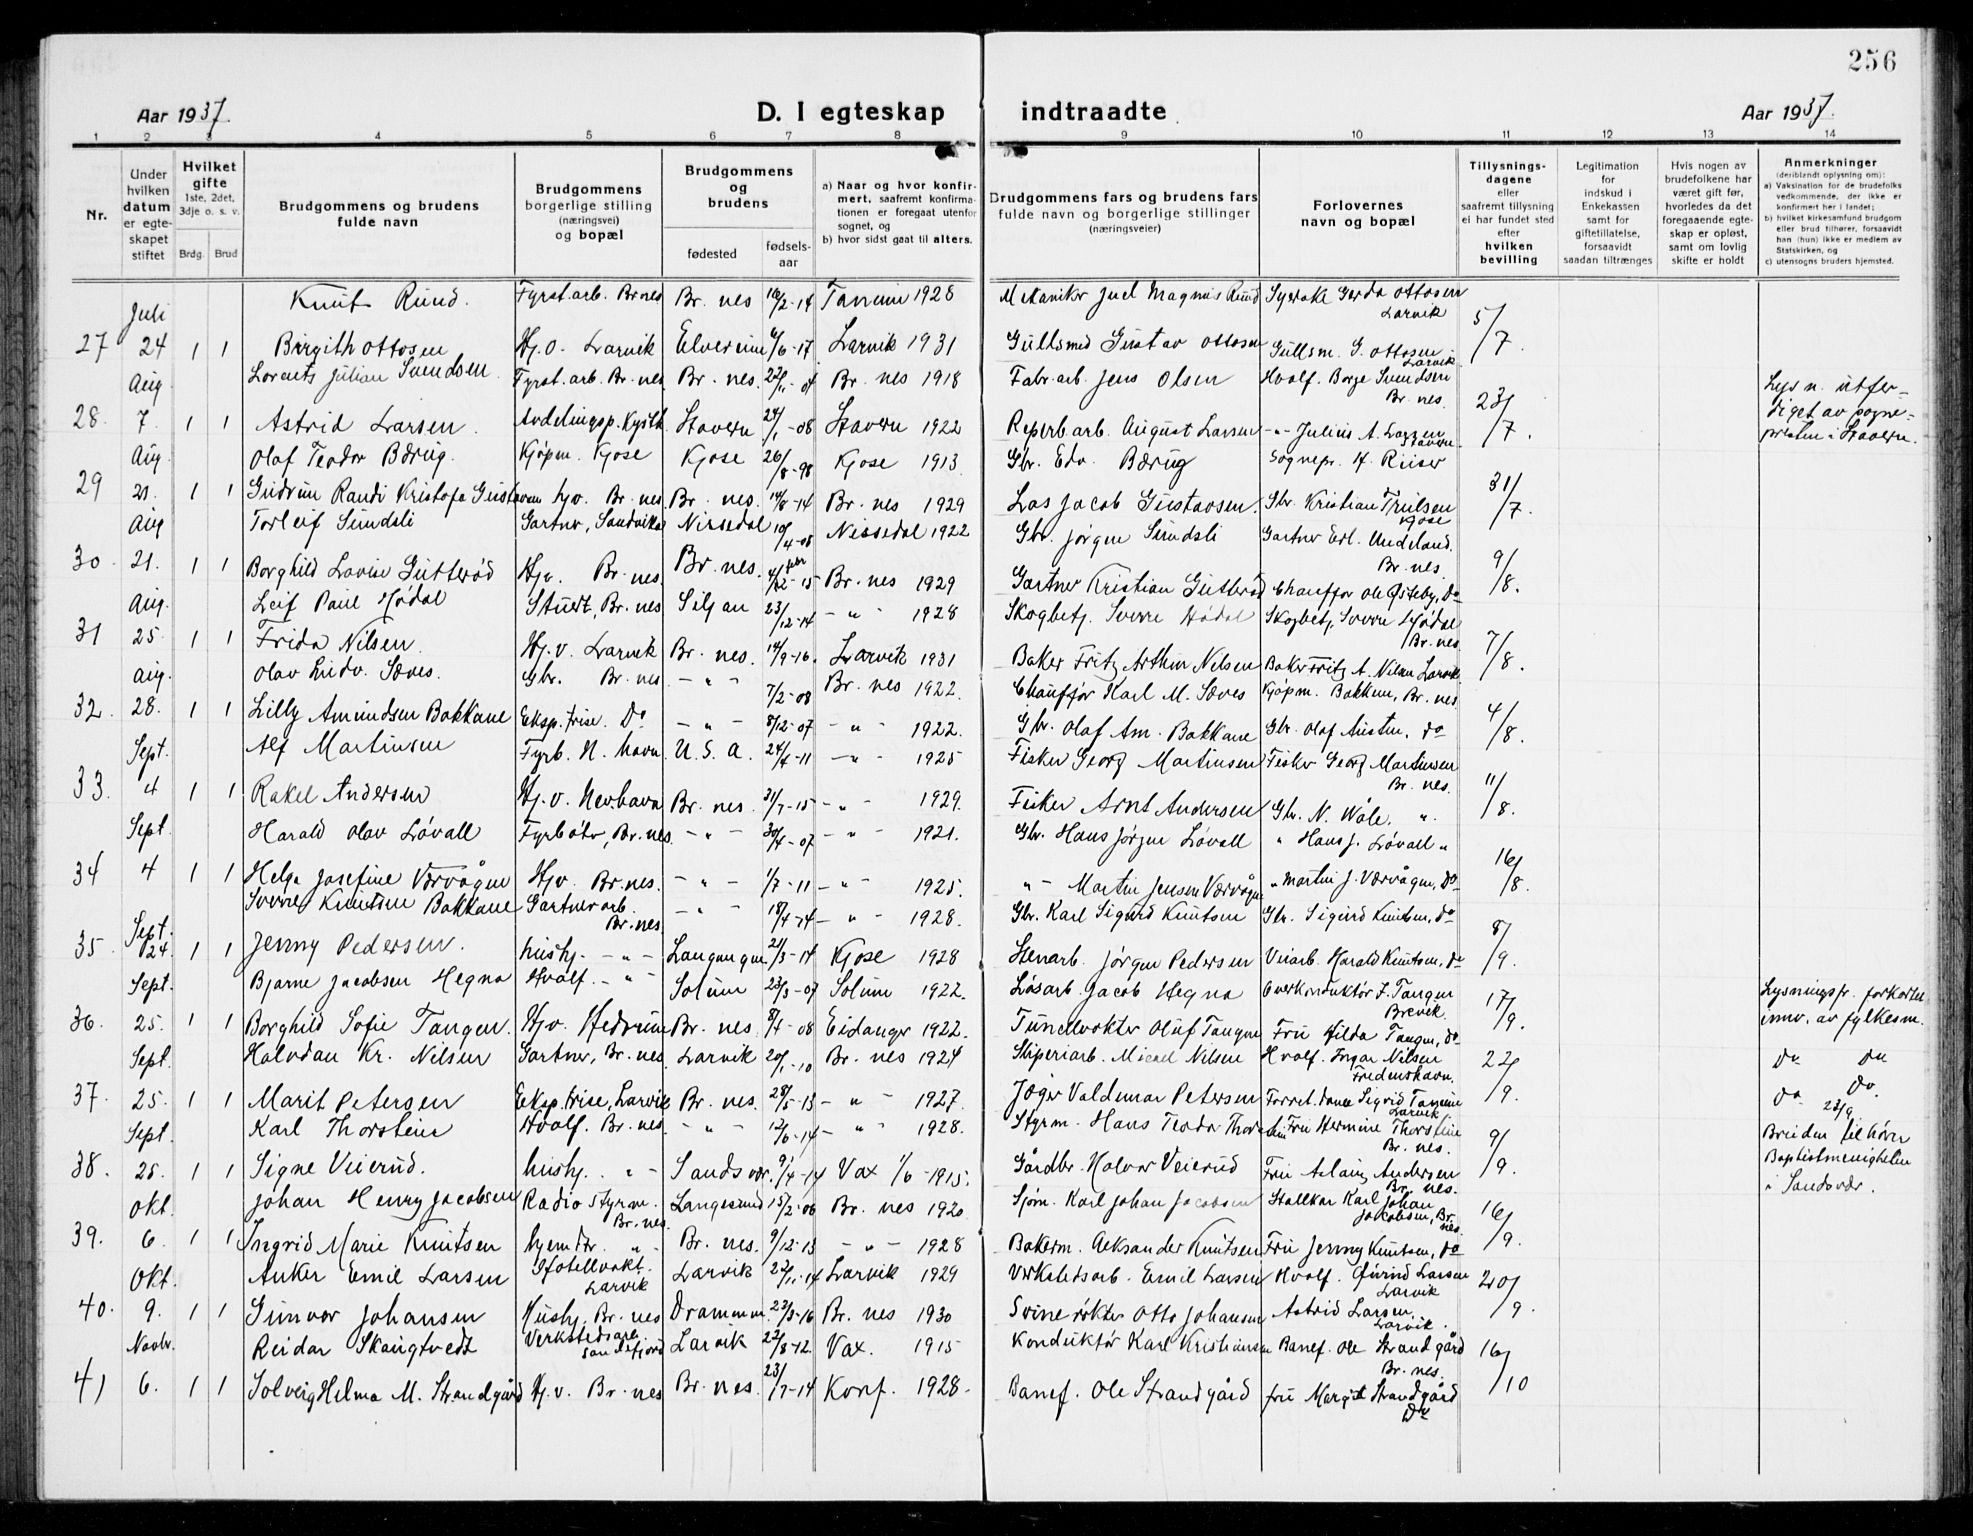 256
Aar 1937. D. I egteskap indtraadte Aar 1937.
1 2 3 4 5 6 7 8 9 10 11 12 13 14
Nr.
Under hvilken datum er egteskapet stiftet
Hvilket gifte 1ste, 2det, 3dje o. s. v.
Brdg. Brud
Brudgommens og brudens fulde navn
Brudgommens borgerlige stilling (næringsvei) og bopæl
Brudgommens og brudens
fødested fødselsaar
a) Naar og hvor konfirmert, saafremt konfirmationen er foregaat utenfor sognet, og
b) hvor sidst gaat til alters.
Brudgommens fars og brudens fars fulde navn og borgerlige stillinger (næringsveier)
Forlovernes navn og bopæl
Tillysningsdagene eller saafremt tillysning ei har fundet sted efter hvilken bevilling
Legitimation for indskud i Enkekassen samt for giftetillatelse, forsaavidt saadan tiltrænges
Hvis nogen av brudefolkene har været gift før, hvorledes da det foregaaende egteskap er opløst, samt om lovlig skifte er holdt
Anmerkninger (deriblandt oplysning om):
a) Vaksination for de brudefolks vedkommende, der ikke er konfirmert her i landet;
b) hvilket kirkesamfund brudgom eller brud tilhører, forsaavidt han (hun) ikke er medlem av Statskirken, og
c) utensogns bruders hjemsted.
Juli Knut Ruud. Fyrst.arb. Br.nes Br. nes 16/2-14 Tanum 1928 Mekaniker Juel Magnus Ruud Syerske Gerda Ottosen Larvik
27 24 1 1 Birgith Ottosen Hj.O. Larvik Elverum 6/6-17 Larvik 1931 Gullsmed Gustav Ottosen Gullsm. G. Ottosen Larvik 5/7.
Aug Lorents Julian Svendsen Fyrst.arb. Br.nes Br. nes. 22/11-04 Br. nes 1918 Fabr.arb. Jens Olsen Hvalf. Borge Svendsen Br. nes.
28. 7. 1 1 Astrid Larsen. Avdelingsp. Stavern 24/1-08 Stavern 1922 Reperb.arb. August Larsen -"- Julius A. Larsen Stavern. 23/7. Lysn. utferdiget av sognepresten i Stavern.
Aug. Olaf Teodor Bærug. Kjøpm. Kjose Kjose 26/8-98 Kjose 1913 Gbr. Edv. Bærug Sognepr. H. Riiser
29 21. 1 1 Gudrun Randi Kristofa Gustavsen hjv. Br. nes. Br. nes. 14/8-14 Br. nes 1929 Las Jacob Gustavsen. Gbr. Kristian Trulsen Kjose 31/7.
Aug Torleif Sundsli Gartner, Sandvika Nissedal 10/4-08 Nissedal 1922 Gbr. Jørgen Sundsli Gartner Erl. Undeland. Br. nes.
30. 21. 1 1 Borghild Lovise Gutterød Hjv. Br. nes. Br. nes. 4/12-15 Br. nes 1929 Gartner Kristian Gutterød Chauffør Ole Østeby, Do 9/8.
Aug. Leif Paul Hødal Stuert, Br. nes Siljan 23/12-14 -"- 1928 Skogbetj. Sverre Hødal Skogbetj. Sverre Hødal Br. nes
31 25. 1 1 Frida Nilsen. Hj.v. Larvik Br. nes. 14/9-16. Larvik 1931 Baker Fritz Arthur Nilsen Baker Fritz A. Nilsen Larvik 7/8.
Aug. Olav Ludv. Sæves. Gbr. Br. nes -"- 7/2-08 Br. nes 1922. Chauffør Karl M. Sæves Kjøpm. Bakken, Br. nes
32. 28. 1 1 Lilly Amundsen Bakkane Eksp.trise. Do -"- 8/12-07 -"- 1922. Gbr. Olaf Am. Bakkane Gbr. Olaf Austen, do 4/8.
Sept. Alf Martinsen Fyrb. N. havn U.S.A. 24/4-11 -"- 1925 Fisker Georg Martinsen Fisker Georg Martinsen Br. nes.
33. 4 1 1 Rakel Andersen Hj.v. Nevlhavn Br. nes. 31/7-15 -"- 1929. Fisker Arnt Andersen Gbr. N. Wåle. ". 11/8.
Sept. Harald Olav Løvall Fyrbøter, Br. nes. -"- 30/4-07 -"- 1921. Gbr. Hans Jørgen Løvall " Hans J. Løvall "
34 4 1 1 Helga Josefine Værvågen Hjv. Br. nes. -"- 1/7-11 -"- 1925. "- Martin Jensen Værvågen " Martin J. Værvågen, do 16/8.
Sverre Knutsen Bakkane Gartnerarb. Br. nes -"- 18/4-14 -"- 1928. Gbr. Karl Sigurd Knutsen Gbr. Sigurd Knutsen, do
35. Sept. 24. 1 1 Jenny Pedersen. hushj. -"- Langangen 21/3-14 Kjose 1928 Stenarb. Jørgen Pedersen Veiarb. Harald Knutsen, do 8/9.
Sept. Bjarne Jacobsen Hegna Hvalf. -"- Solum 23/3-07 Solum 1922. Løsarb. Jacob Hegna Overkonduktør J. Tangen Brevik
36. 25. 1 1 Borghild Sofie Tangen. Hjv. Hedrum Br. nes. 8/4-08 Eidanger 1922. Tunellvokter Oluf Tangen Fru Hilda Tangen, do 17/9. Lysningsfr. forkortet innv. av fylkesm.
Sept. Halvdan Kr. Nilsen Gartner, Br. nes Larvik 20/1-10 Br. nes 1924 Sliperiarb. Micael Nilsen Hvalf. Ingar Nilsen Fredenshavn. 22/9. Do Do
37. 25. 1 1 Marit Petersen Eksp.trise, Larvik Br. nes. 28/5-13 -"- 1927. Jeger Valdemar Petersen Forret.dame Sigrid Tanum Larvik Do Do. 23/9
Sept. Karl Thorstein Hvalf. Br. nes. -"- 12/6-14 -"- 1928. Styrm. Hans Teodor Thorstein Fru Hermine Thorstein Br. nes.
38. 25. 1 1 Signe Veierud. hushj. "- Sandsvær. 9/4-14 Vax 1/6-1915. Gårdbr. Halvor Veierud Fru Aslaug Andersen Br. nes. 9/9. Bruden tilhører Baptistmenigheten i Sandsvær.
Okt. Johan Henry Jacobsen Radiostyrm. Br. nes. Langesund 15/2-06 Br. nes 1920 Sjøm. Karl Johan Jacobsen Stallkar Karl Johan Jacobsen, Br. nes
39. 6. 1 1 Ingrid Marie Knutsen hjemdr. "- Br. nes. 9/12-13 -"- 1928 Bakerm. Aeksander Knutsen Fru Jenny Knutsen, do 16/9.
Okt. Anker Emil Larsen Hotellvakt. Larvik Larvik 22/11-14 Larvik 1929 Verkstedsarb. Emil Larsen Hvalf. Øivind Larsen Larvik
40. 9. 1 1 Gunvor Johansen Hushj. Br. nes Drammen. 22/3-16 Br. nes 1930 Svinerøkter Otto Johansen Astrid Larsen. Larvik. 20/9.
Novbr. Reidar Skaugtvedt Verkstedsarb. Sandefjord Larvik 22/8-12. Vax. 1915 Konduktør Karl Kristiansen Banef. Ole Strandgård Br. nes.
41 6. 1 1 Solveig Helma M. Strandgård Hj.v. Br. nes Br. nes. 23/7-14 Konf. 1928. Banef. Ole Strandgård fru Margit Strandgård Do 16/10